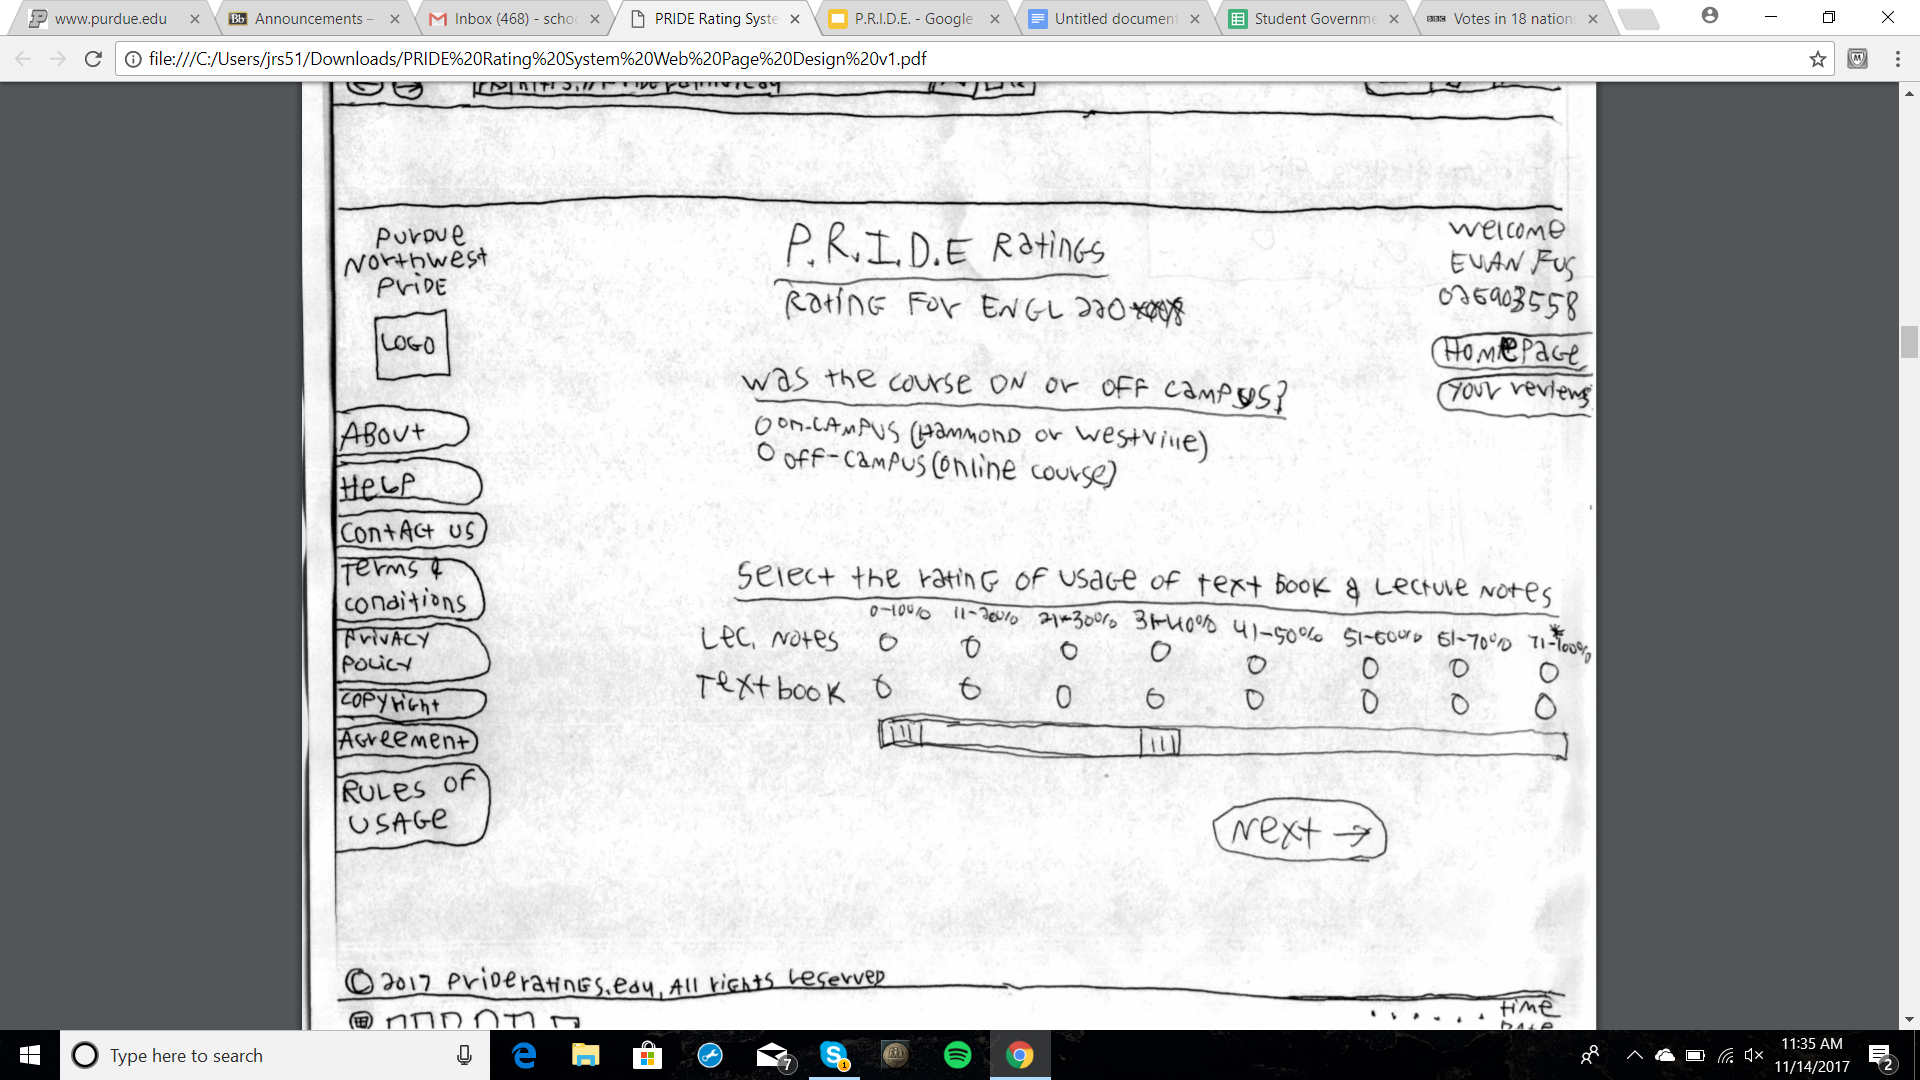 www.purdue.edu
Announcements –
Inbox (468) - schoo
PRIDE Rating Syste
P.R.I.D.E. - Google
Untitled document
Student Governme
BBC Votes in 18 nation
file:///C:/Users/jrs51/Downloads/PRIDE%20Rating%20System%20Web%20Page%20Design%20v1.pdf
Purdue
Northwest
Pride
LOGO
About
Help
Contact us
Terms &
conditions
Privacy
Policy
copyright
Agreement
Rules of
Usage
P.R.I.D.E Ratings
Rating For ENGL 220
was the course on or off campus?
on-campus (Hammond or Westville)
off-campus (online course)
Select the rating of usage of text book & Lecture Notes
0-10% 11-20% 21-30% 31-40% 41-50% 51-60% 61-70% 71-100% *
Lec. Notes
Textbook
Next →
welcome
EVAN Fus
026903558
Homepage
Your reviews
© 2017 Prideratings.edu, All rights reserved
time
Date
Type here to search
7
1
11:35 AM
11/14/2017
2